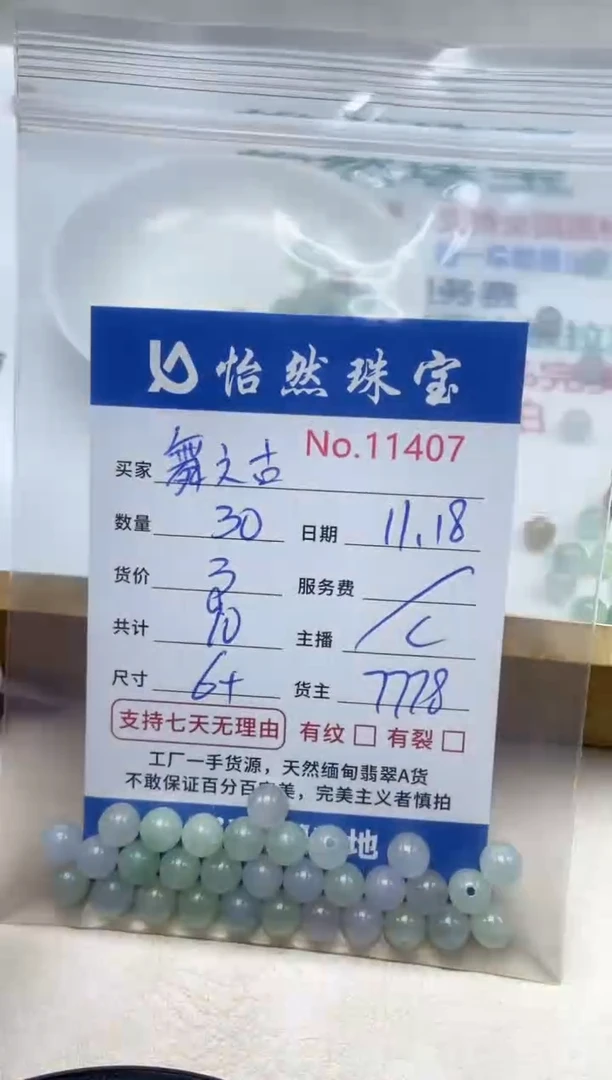 怡然珠宝
No.11407
买家 舞文古
数量 30 日期 11.18
货价 3 服务费
共计 90 主播 C
尺寸 6+ 货主 7778
支持七天无理由 有纹 □ 有裂 □
工厂一手货源，天然缅甸翡翠A货
不敢保证百分百完美，完美主义者慎拍
地